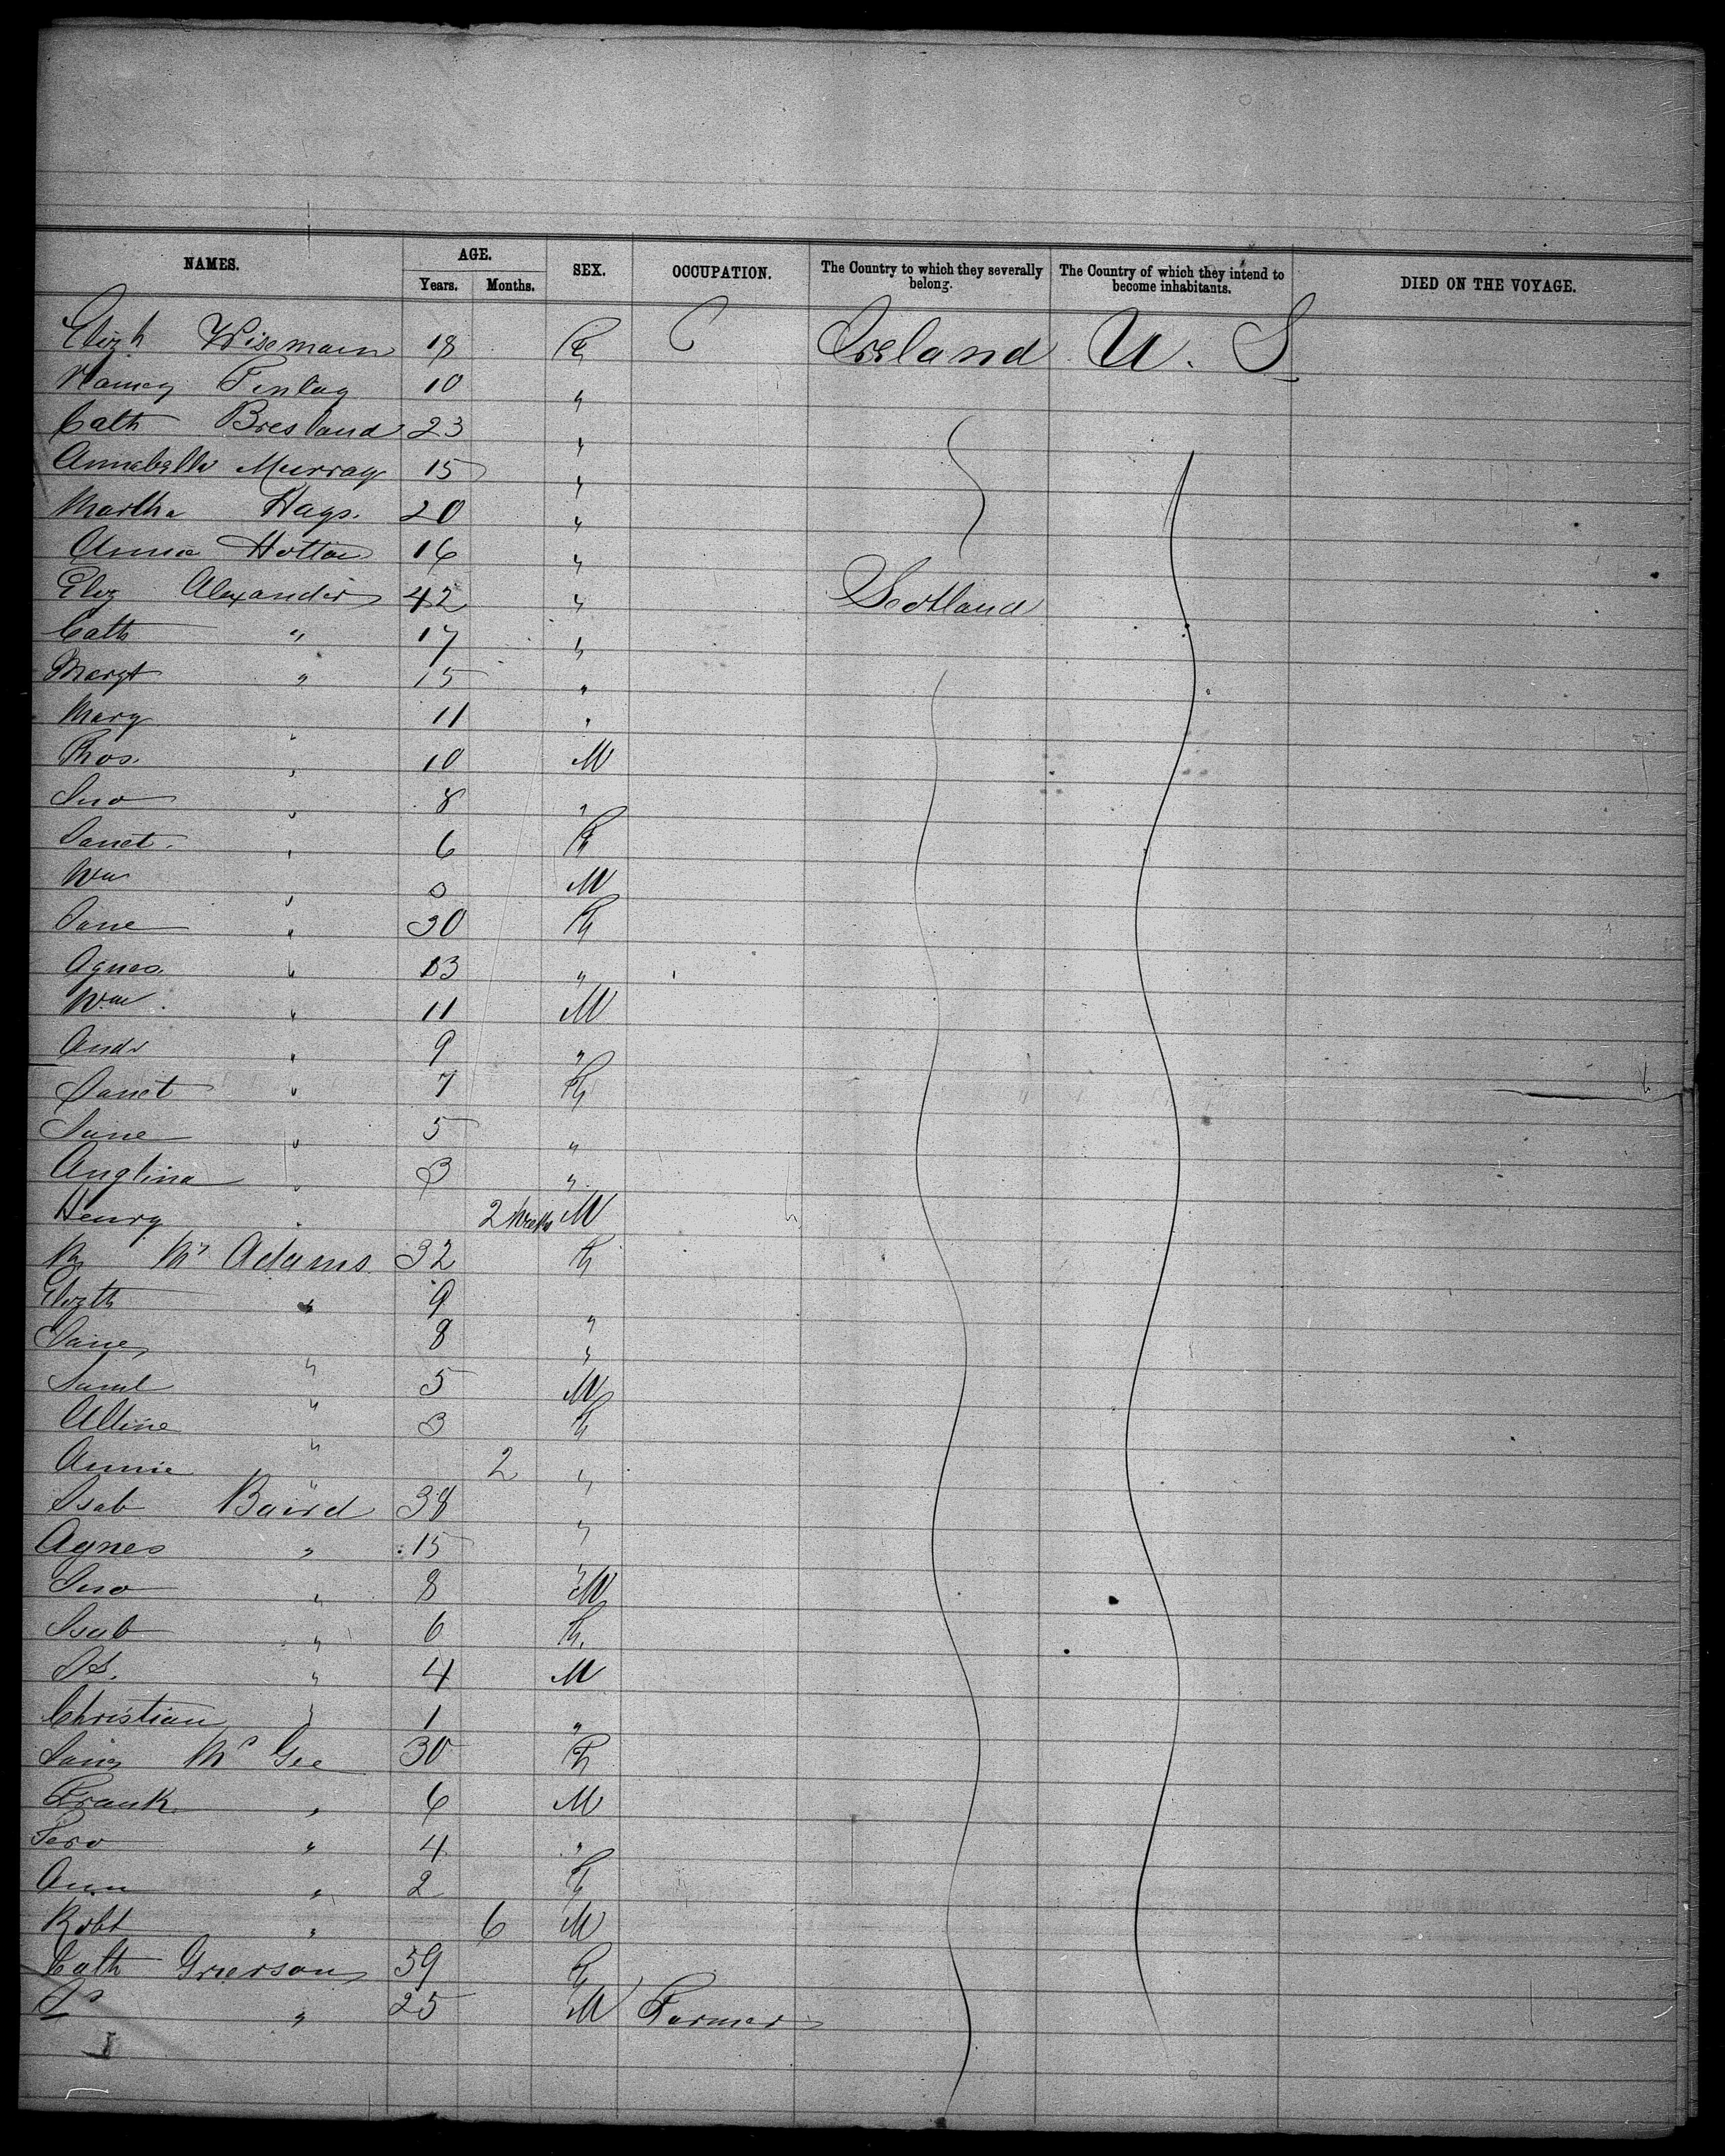 NAMES. AGE. SEX. OCCUPATION. The Country to which they severally belong. The Country of which they intend to become inhabitants. DIED ON THE VOYAGE.
Years. Months.
Elizh Wisemain 18 F Ireland U. S
Nancy Finlay 10 "
Cath Bresland 23 "
Annabella Murray 15 "
Martha Hays. 20 "
Annie 16 "
Eliz Alexander 42 " Scotland
Cath " 17 "
Margt " 15 "
Mary " 11 "
Thos. " 10 M
Jno " 8 "
Janet " 6 F
Wm " 3 M
Jane " 30 F
Agnes " 13 "
Wm " 11 M
Andr " 9 "
Janet " 7 F
Jane " 5 "
Anglina " 3 "
Henry " 2 Weeks M
Mc Adams 32 F
Elizth " 9 "
Jane " 8 "
Saml " 5 M
" 3 F
Annie " 2 "
Isab Baird 38 "
Agnes " 15 "
Jno " 8 M
Isab " 6 F
Js. " 4 M
Christian " 1 "
Mc Gee 30 F
Frank " 6 M
" 4 "
Ann " 2 F
Robt " 6 M
Cath Grierson 59 F
Js " 25 M Farmer